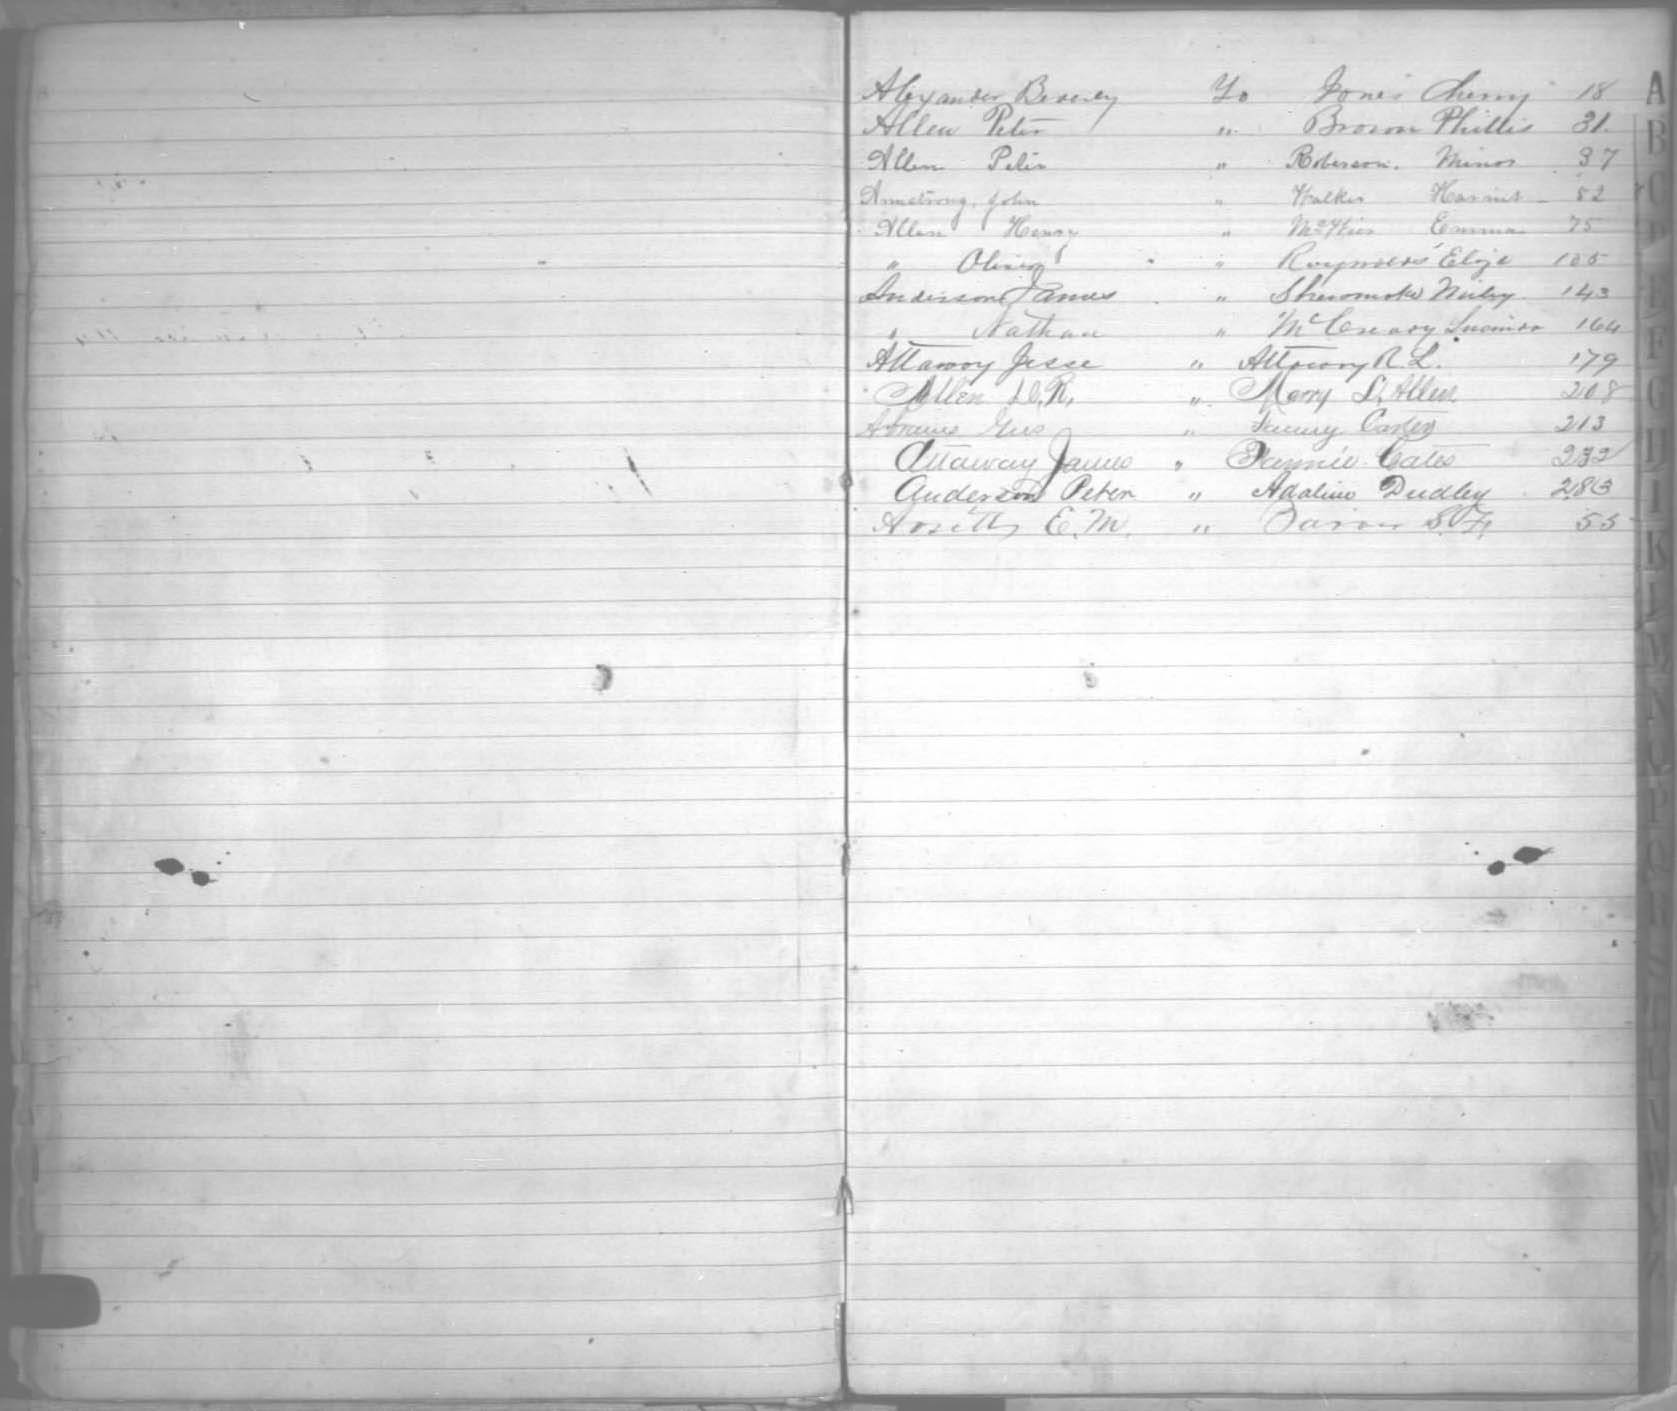 Alexander Beverly To Jones Cherry 18
Allen Peter " Brown Phillis 31.
Allen Peter " Roberson. Minor 37
Armstrong, John " Walker Harriet - 52
Allen Henry " Emma 75
" Oliver " Raynolds Eliza 105
Anderson James " 143
" Nathan " McCreary 164
Attaway Jesse " Attaway R. L. 179
Allen " Mary L. Allen 208
Abrams Gus " Fanny Carter 213
Attaway James " Fannie Cates 232
Anderson Peter " Adaline Dudley 283
E. M. " S. F. 55
A
B
C
D
E
F
G
H
I
K
L
M
N
O
P
Q
R
S
T
U
V